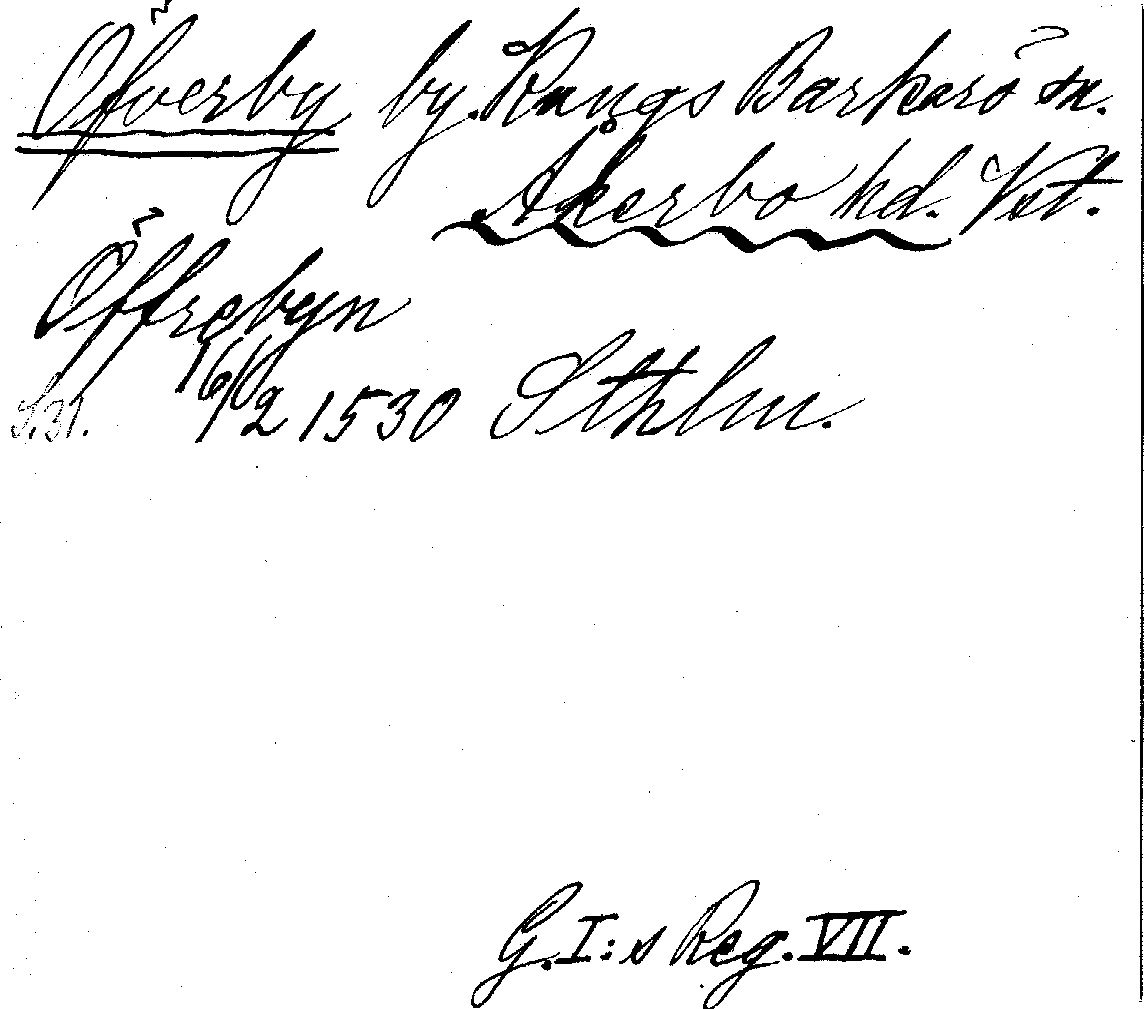 Öfverby by. Kungs Barkarö sn.
Åkerbo hd. Vst.
Öffrebyn
S.31. 16/2 1530 Sthlm.
G.I:s Reg. VII.